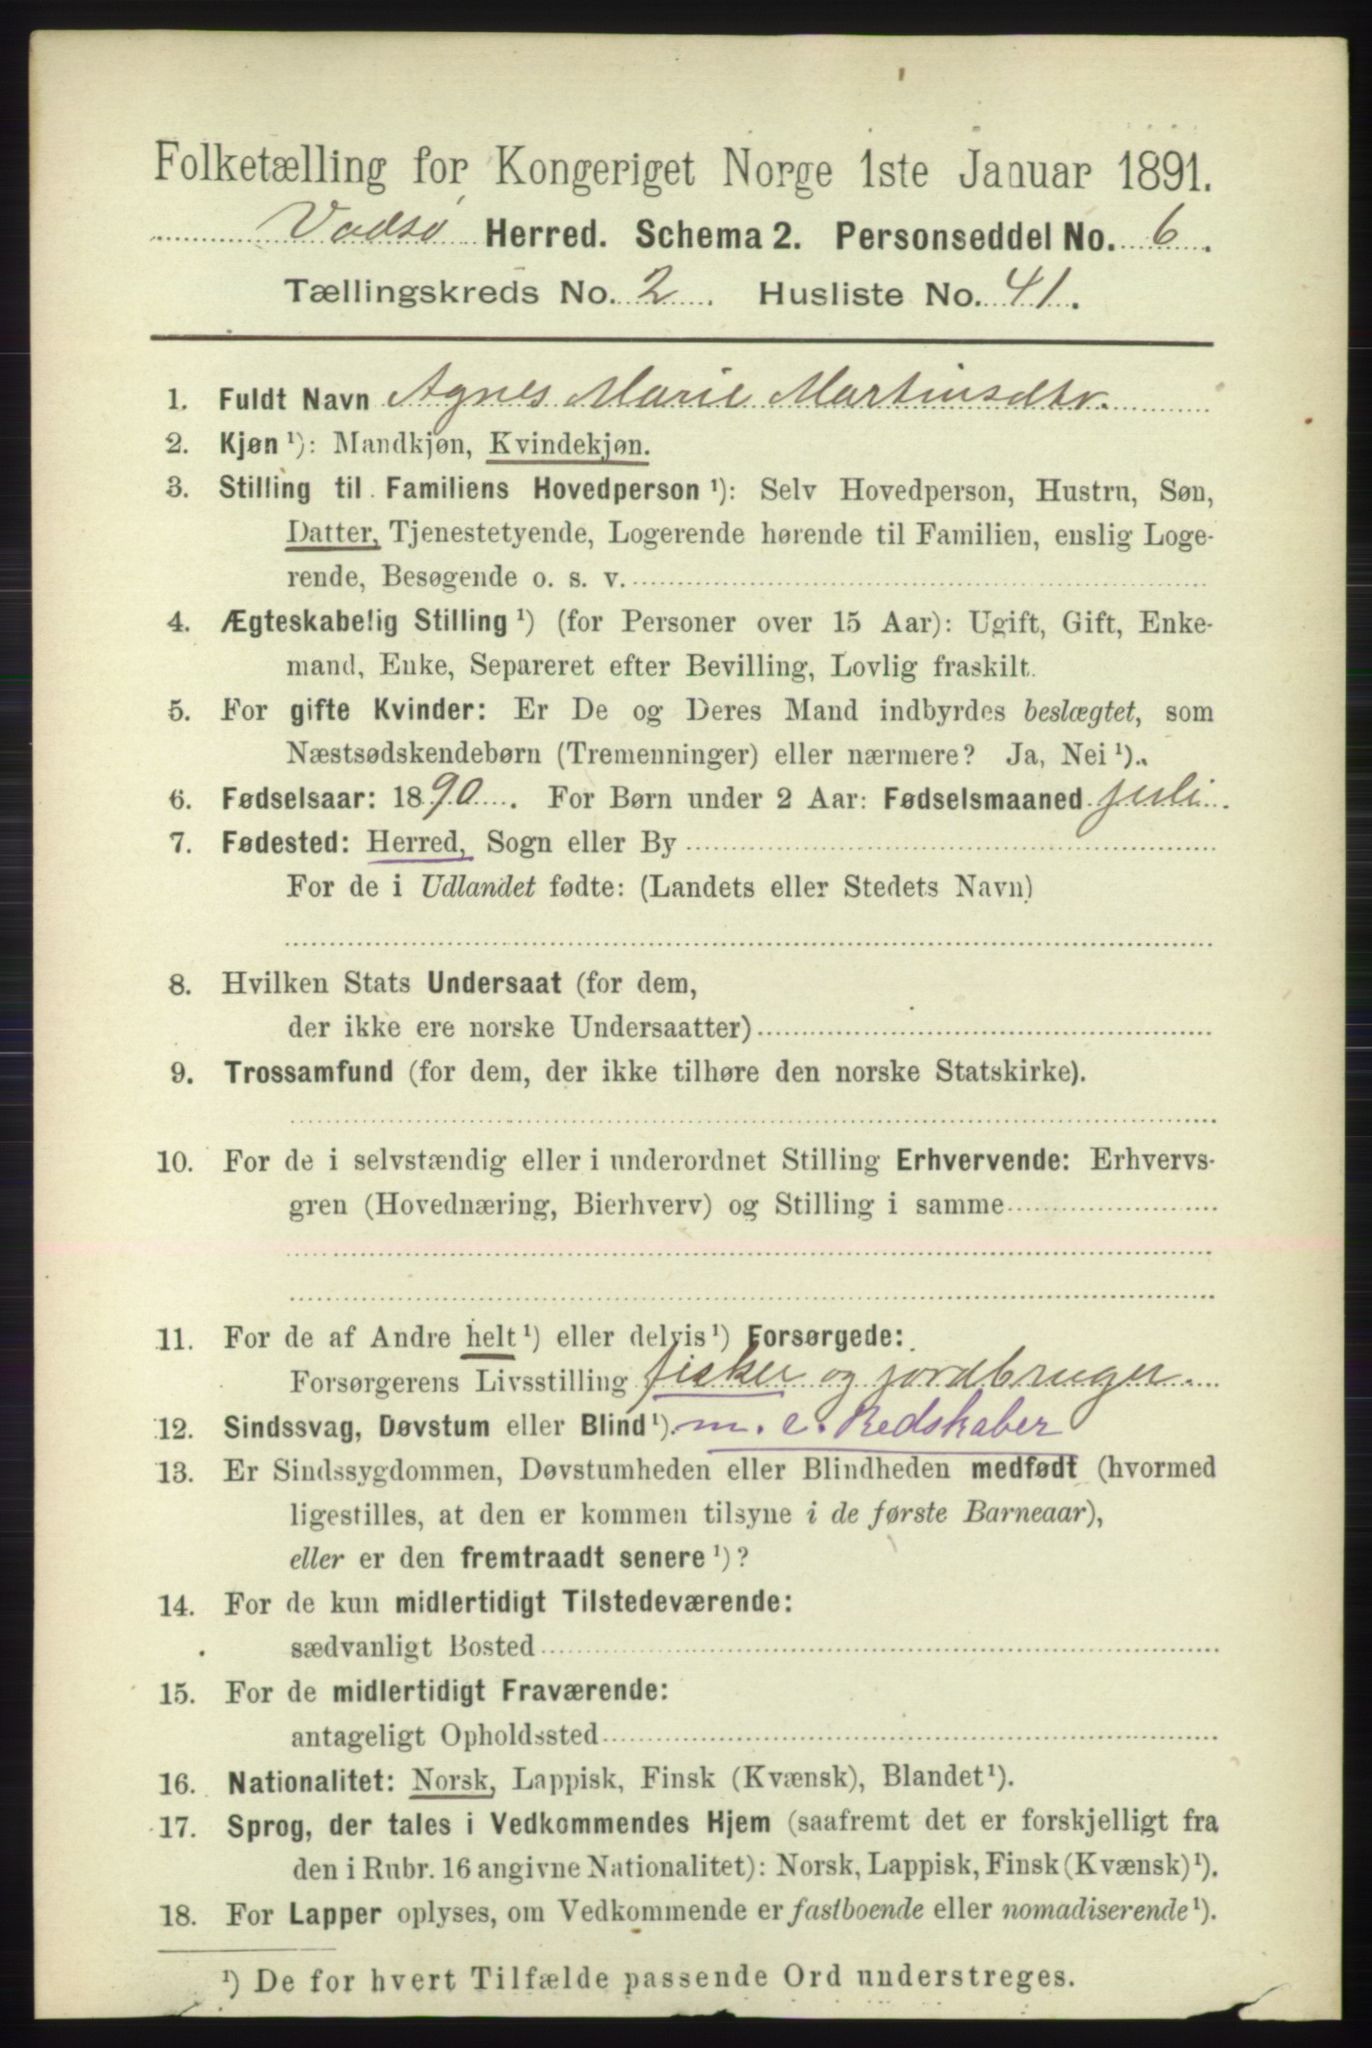 Folketælling for Kongeriget Norge 1ste Januar 1891.
Vadsø Herred. Schema 2. Personseddel No. 6.
Tællingskreds No. 2. Husliste No. 41.
1. Fuldt Navn Agnes Marie Martinsdtr.
2. Kjøn ¹): Mandkjøn, Kvindekjøn.
3. Stilling til Familiens Hovedperson ¹): Selv Hovedperson, Hustru, Søn,
Datter, Tjenestetyende, Logerende hørende til Familien, enslig Loge-
rende, Besøgende o. s. v.
4. Ægteskabelig Stilling ¹) (for Personer over 15 Aar): Ugift, Gift, Enke-
mand, Enke, Separeret efter Bevilling, Lovlig fraskilt.
5. For gifte Kvinder: Er De og Deres Mand indbyrdes beslægtet, som
Næstsødskendebørn (Tremenninger) eller nærmere? Ja, Nei ¹).
6. Fødselsaar: 1890. For Børn under 2 Aar: Fødselsmaaned juli.
7. Fødested: Herred, Sogn eller By
For de i Udlandet fødte: (Landets eller Stedets Navn)
8. Hvilken Stats Undersaat (for dem,
der ikke ere norske Undersaatter)
9. Trossamfund (for dem, der ikke tilhøre den norske Statskirke).
10. For de i selvstændig eller i underordnet Stilling Erhvervende: Erhvervs-
gren (Hovednæring, Bierhverv) og Stilling i samme
11. For de af Andre helt ¹) eller delvis ¹) Forsørgede:
Forsørgerens Livsstilling fisker og jordbruger.
12. Sindssvag, Døvstum eller Blind ¹). m. e. Redskaber
13. Er Sindssygdommen, Døvstumheden eller Blindheden medfødt (hvormed
ligestilles, at den er kommen tilsyne i de første Barneaar),
eller er den fremtraadt senere ¹)?
14. For de kun midlertidigt Tilstedeværende:
sædvanligt Bosted
15. For de midlertidigt Fraværende:
antageligt Opholdssted
16. Nationalitet: Norsk, Lappisk, Finsk (Kvænsk), Blandet ¹).
17. Sprog, der tales i Vedkommendes Hjem (saafremt det er forskjelligt fra
den i Rubr. 16 angivne Nationalitet): Norsk, Lappisk, Finsk (Kvænsk) ¹).
18. For Lapper oplyses, om Vedkommende er fastboende eller nomadiserende ¹).
¹) De for hvert Tilfælde passende Ord understreges.